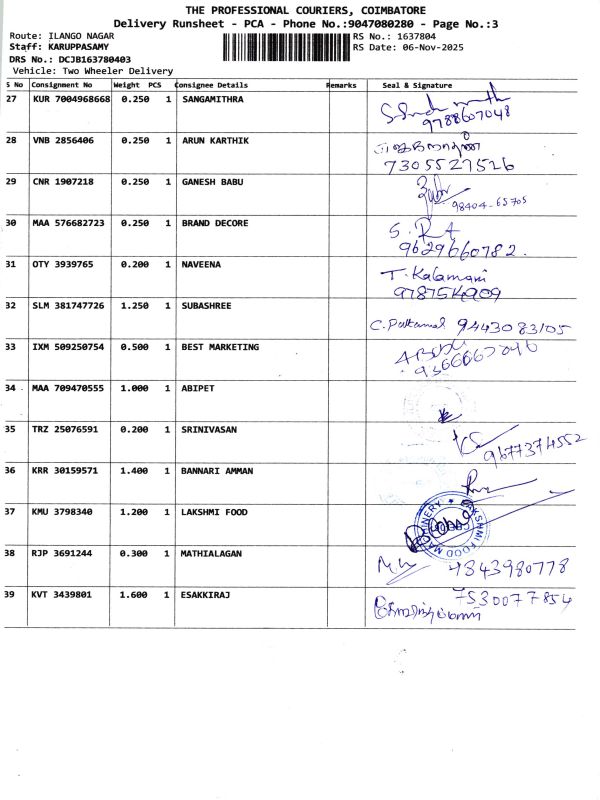 THE PROFESSIONAL COURIERS, COIMBATORE
Delivery Runsheet - PCA - Phone No.:9047080280 - Page No.:3
Route: ILANGO NAGAR
RS No.: 1637804
Staff: KARUPPASAMY
RS Date: 06-Nov-2025
DRS No.: DCJB163780403
Vehicle: Two Wheeler Delivery
S No Consignment No Weight PCS Consignee Details Remarks Seal & Signature
27 KUR 7004968668 0.250 1 SANGAMITHRA
9788607048
28 VNB 2856406 0.250 1 ARUN KARTHIK
7305527526
29 CNR 1907218 0.250 1 GANESH BABU
98404-65705
30 MAA 576682723 0.250 1 BRAND DECORE S. R A
9629660782.
31 OTY 3939765 0.200 1 NAVEENA T. Kalamani
978754909
32 SLM 381747726 1.250 1 SUBASHREE
9443083105
33 IXM 509250754 0.500 1 BEST MARKETING
34 MAA 709470555 1.000 1 ABIPET
35 TRZ 25076591 0.200 1 SRINIVASAN
9677374552
36 KRR 30159571 1.400 1 BANNARI AMMAN
37 KMU 3798340 1.200 1 LAKSHMI FOOD
LAKSHMI FOOD MACHINERY
38 RJP 3691244 0.300 1 MATHIALAGAN
9843980778
39 KVT 3439801 1.600 1 ESAKKIRAJ 7530077854